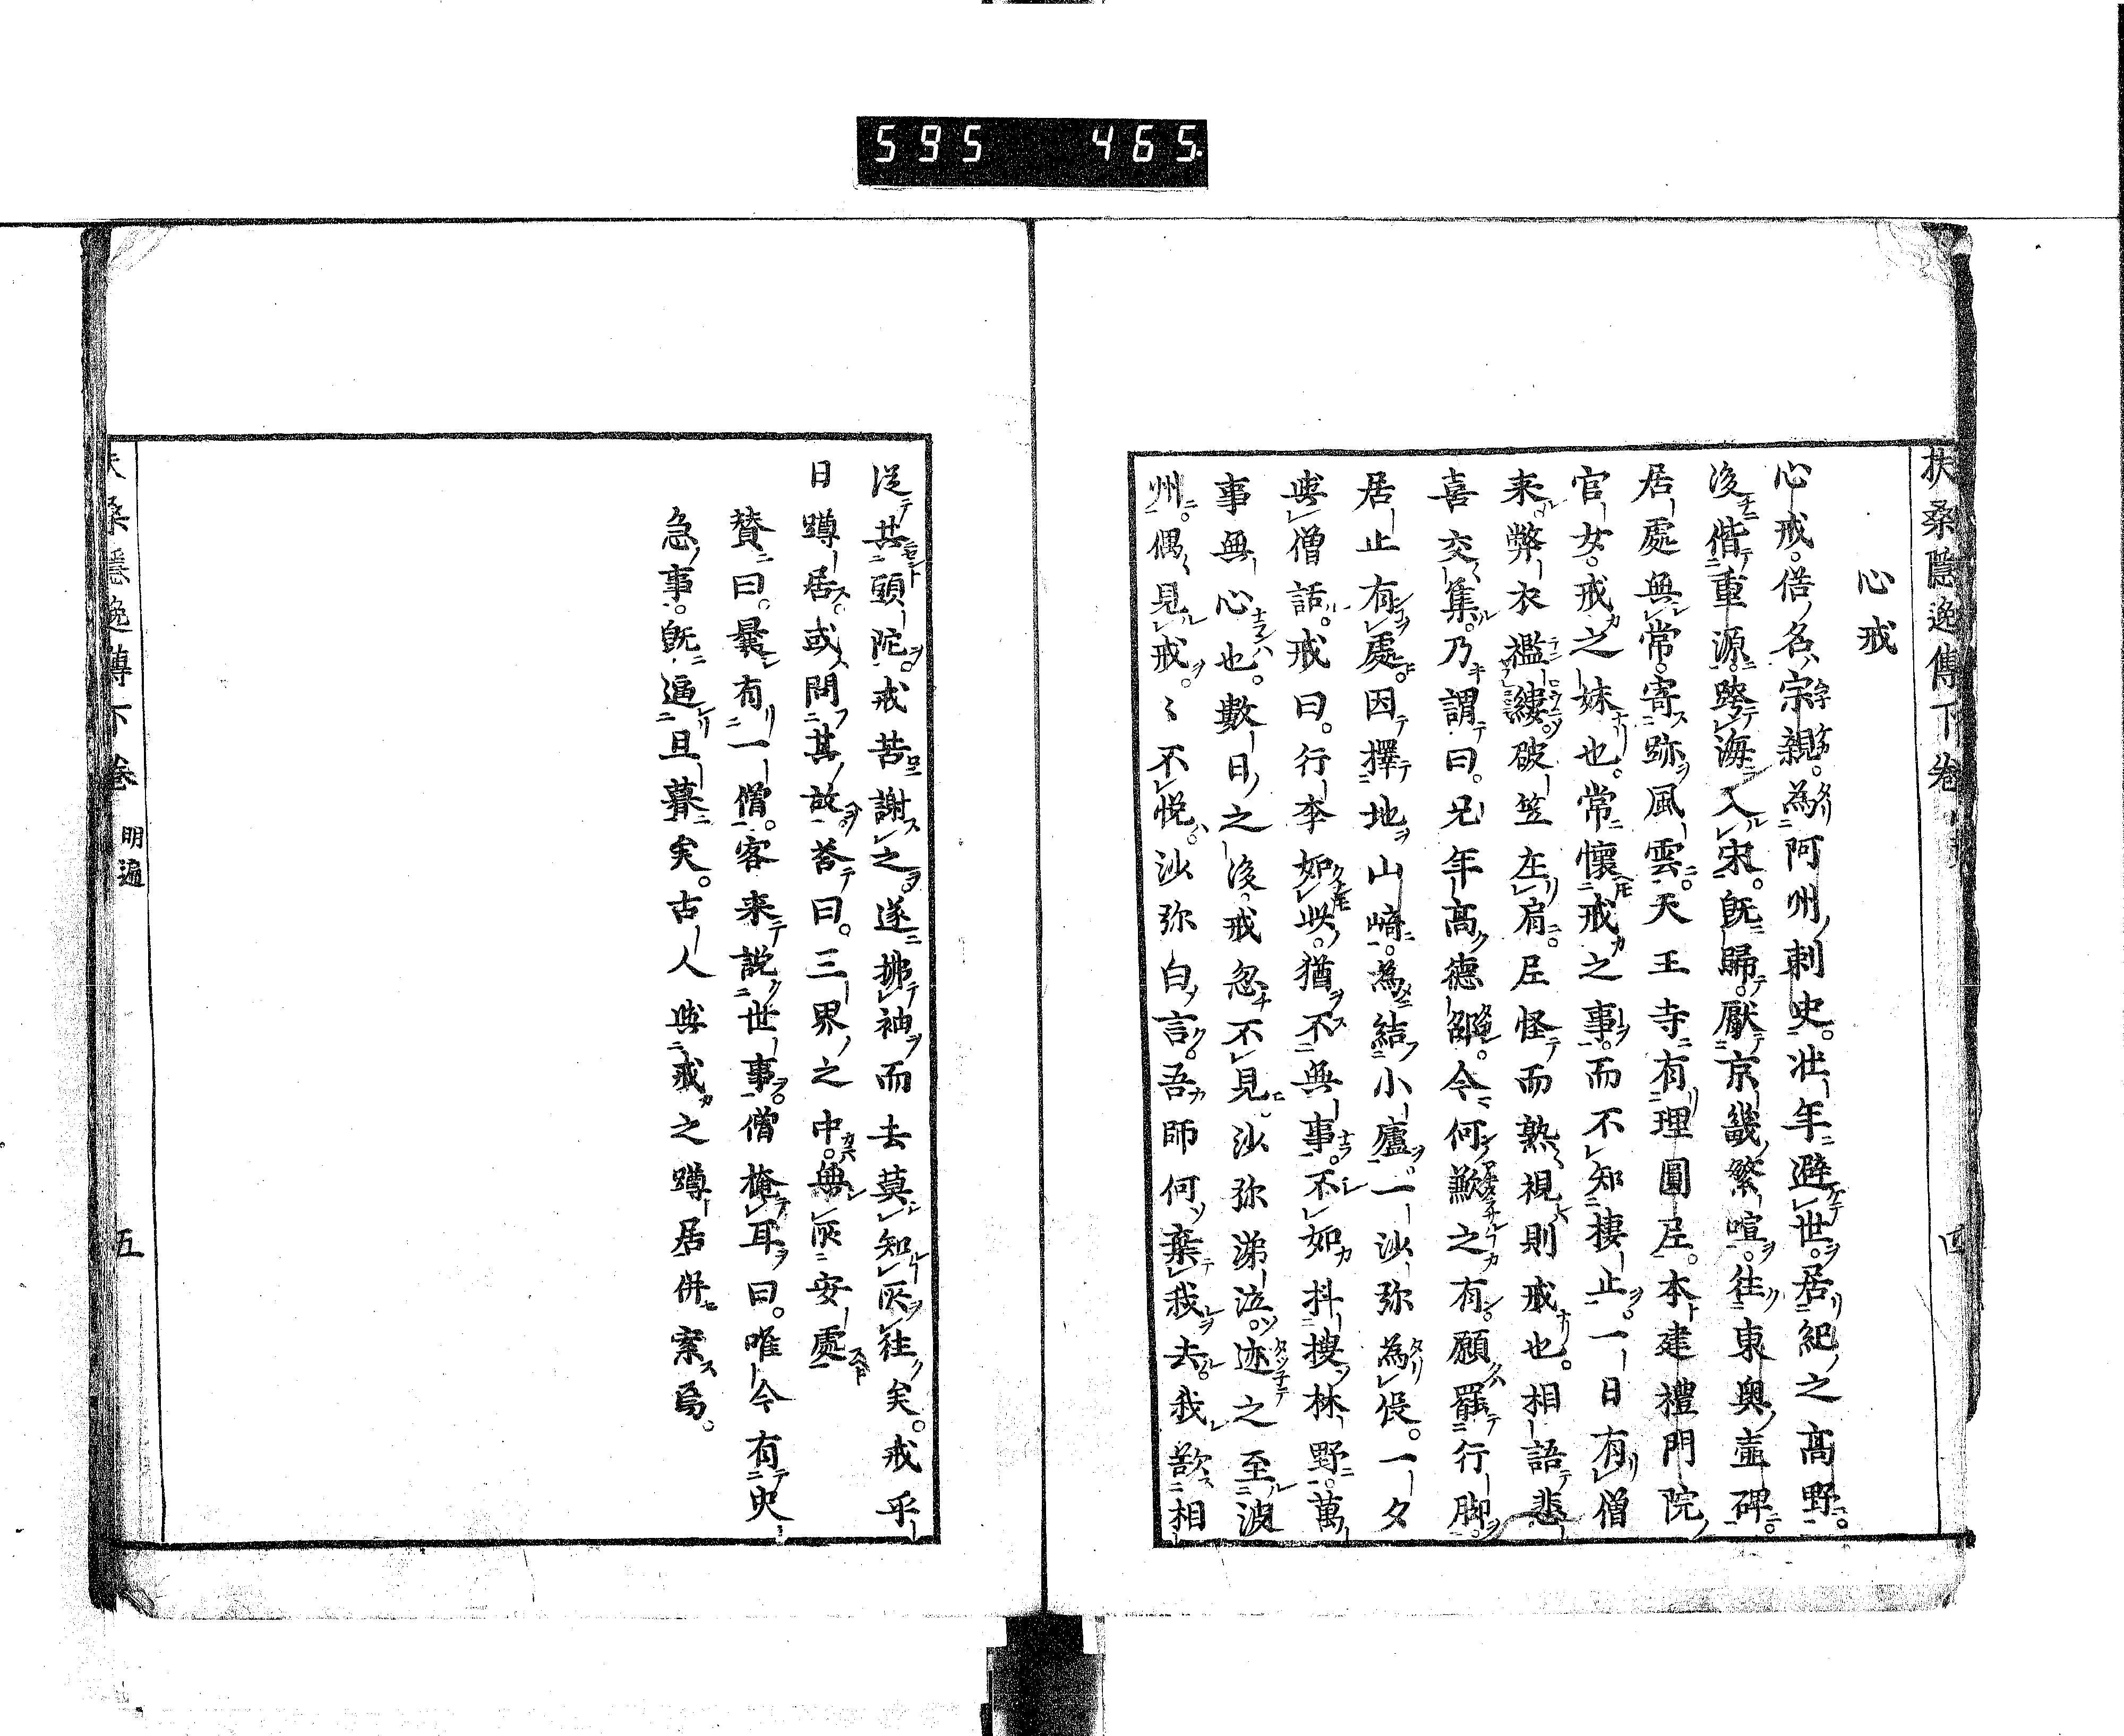 595 465
扶桑隱逸傳下卷 四
心戒
心戒。俗名宗親。為阿州刺史。壮年避世。居紀之高野。
後偕重源跨海入宋。既歸。厭京畿繁喧。往東奥壷碑。
居處無常。寄跡風雲。天王寺有理圓尼。本建禮門院
官女。戒之妹也。常懷戒之事。而不知棲止。一日有僧
来。弊衣襤縷。破笠在肩。尼怪而熟視則戒也。相語悲
喜交集。乃謂曰。兄年高德邵。今何歉之有。願罷行脚。
居止有處。因擇地山崎。為結小廬。一沙弥為役。一夕
與僧話。戒曰。行李如此。猶不無事。不如抖擻林野。萬
事無心也。數日之後。戒忽不見。沙弥涕泣。迹之至波
州。偶見戒。〻不悦。沙弥白言。吾師何棄我去。我欲相
從其頭陀。戒苦謝之。遂拂袖而去莫知所往矣。戒乎
日蹲居。或問其故。答曰。三界之中。無所安處
賛曰。曩有一僧。客来說世事。僧掩耳曰。唯今有火
急事。既逼旦暮矣。古人與戒之蹲居併案焉。
扶桑隱逸傳下卷 明遍 五